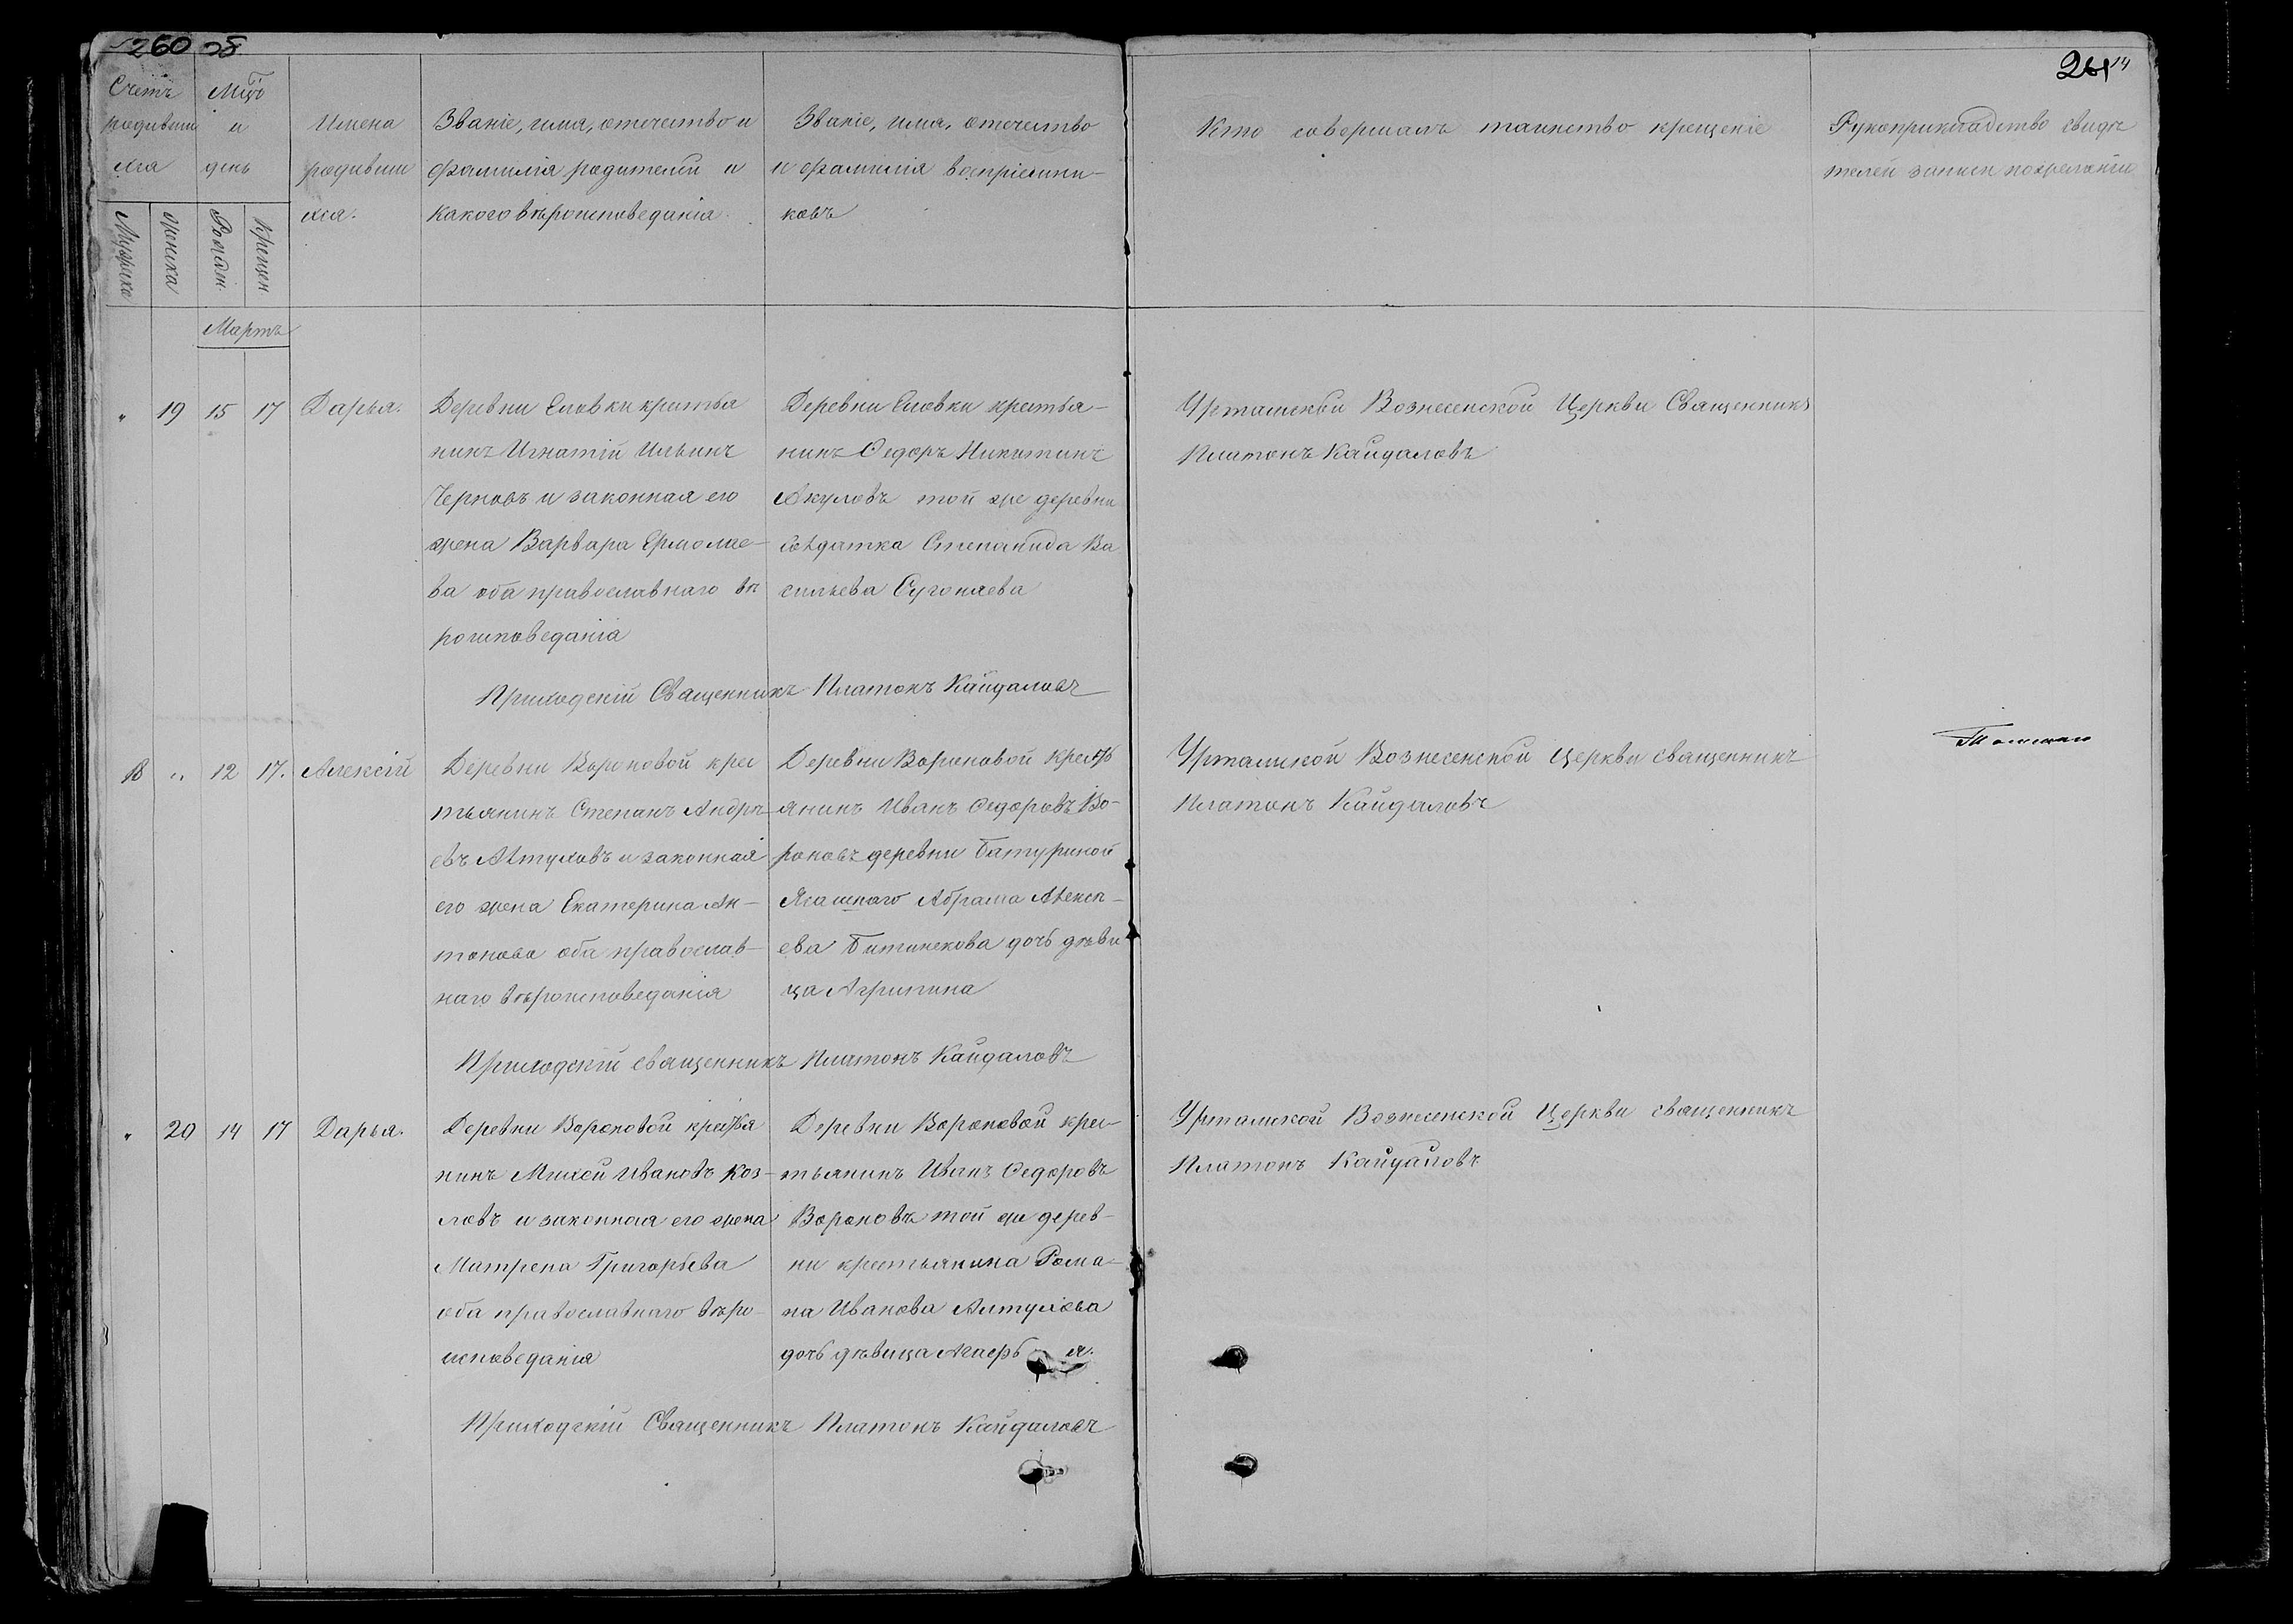 260 об
261 14
Счетъ
родивши
хся
Мужска
Женска
Мцъ
и
день
Рожден.
Крещен
Имена
родивши
хся.
Званіе, имя, отечество и
фамилія родителей и
какого вѣроисповеданія.
Званіе, имя, отечество
и фамилія воспріемни-
ковъ
Кто совершалъ таинство крещеніе
Рукоприкладство свидѣ
телей записи по
Мартъ
" 19 15 17 Дарья.
Деревни Еловки крестья
нинъ Игнатій Ильинъ
Черновъ и законная его
жена Варвара Ермолае-
ва оба православнаго вѣ
роисповеданія
Деревни Еловки крестья-
нинъ Ѳедоръ Никитинъ
Акуловъ той же деревни
Солдатка Степанида Ва
сильева Сугоняева
Урташской Вознесенской Церкви Священникъ
Платонъ Кайдаловъ
Приходскій Священникъ Платонъ Кайдаловъ
18 " 12 17. Алексѣй
Деревни Вороновой крес
тьянинъ Степанъ Андрѣ-
евъ Алтуховъ и законная
его жена Екатерина Ан-
тонова оба православ-
наго вѣроисповеданія
Деревни Вороновой крестья
янинъ Иванъ Ѳедоровъ Во-
роновъ деревни Батуриной
Ясашнаго Абрама Алексѣ-
ева дочь дѣви
ца Агрипина
Урташской Вознесенской церкви священникъ
Платонъ Кайдаловъ
Приходскій священникъ Платонъ Кайдаловъ
" 20 14 17 Дарья.
Деревни Вороновой крестья
нинъ Михей Ивановъ Коз-
ловъ и законная его жена
Матрена Григорьева
оба православнаго вѣро-
исповеданія
Деревни Вороновой крес-
тьянинъ Иванъ Ѳедоровъ
Вороновъ той же дерев-
ни крестьянина Рома-
на Иванова Алтухова
дочь дѣвица
Урташской Вознесенской Церкви священникъ
Платонъ Кайдаловъ
Приходскій Священникъ Платонъ Кайдаловъ